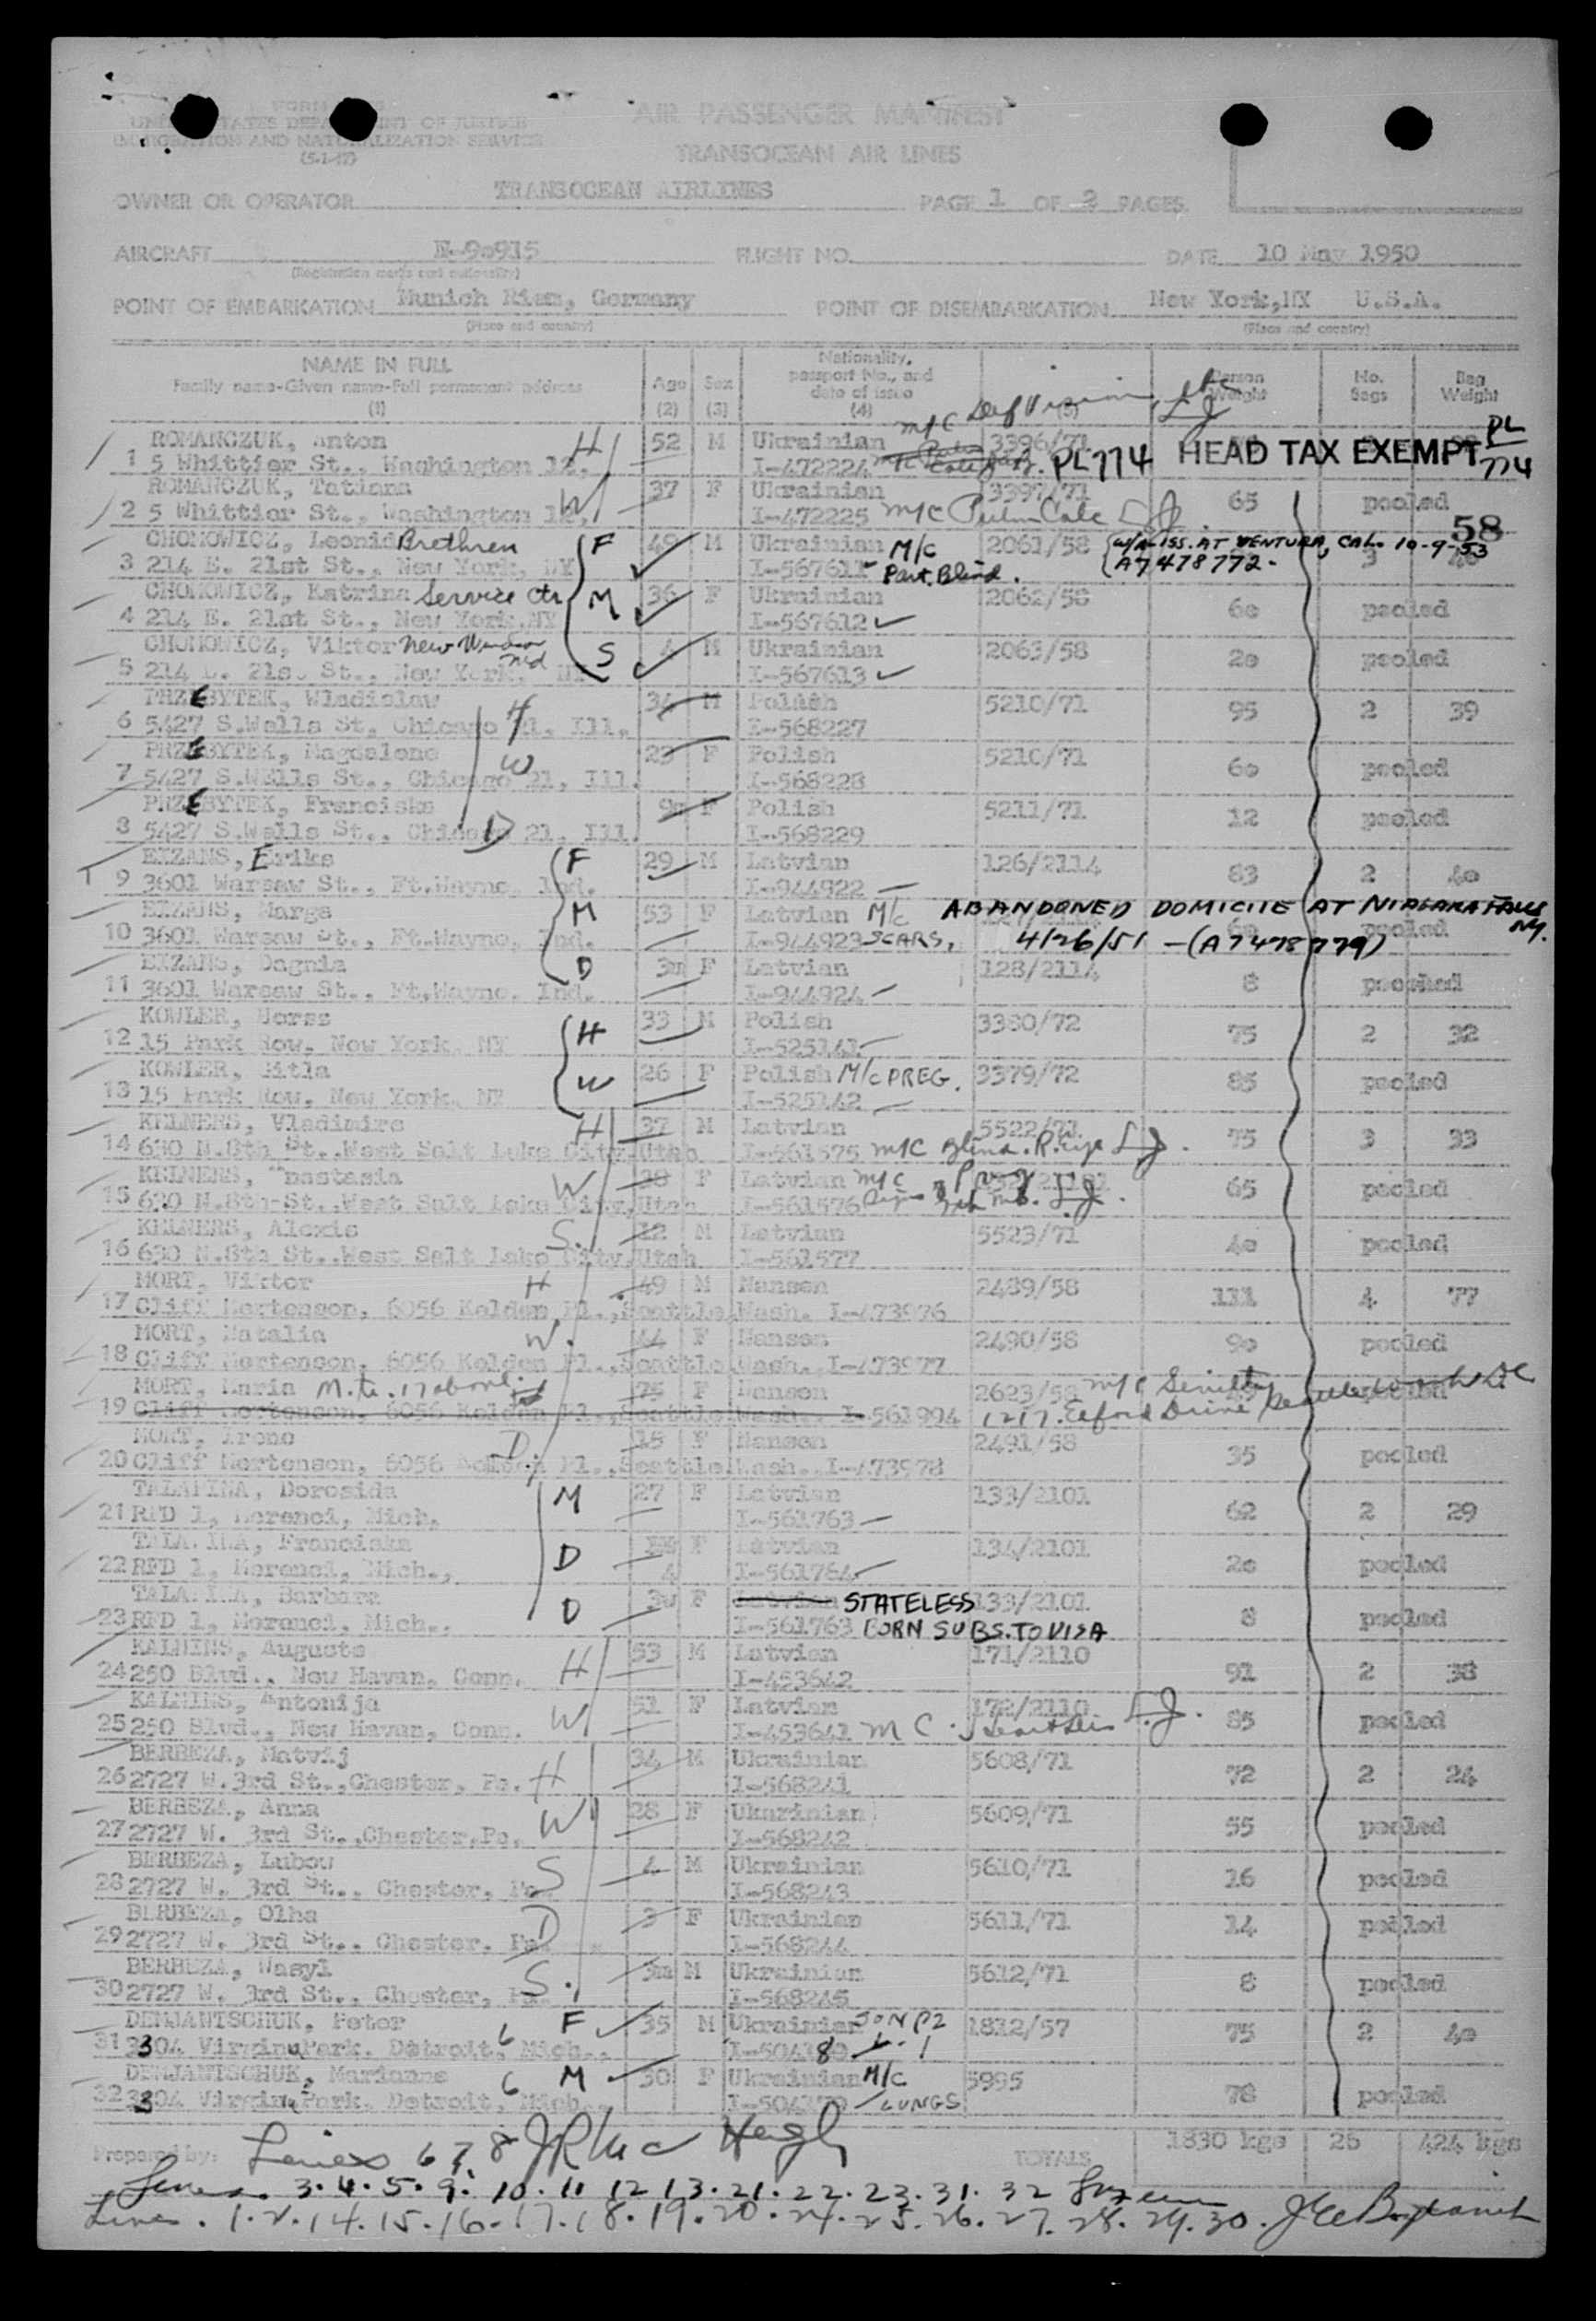 AIR PASSENGER MANIFEST
UNITED STATES DEPARTMENT OF JUSTICE
IMMIGRATION AND NATURALIZATION SERVICE
TRANSOCEAN AIR LINES
OWNER OR OPERATOR TRANSOCEAN AIRLINES PAGE 1 OF 2 PAGES
AIRCRAFT N-90915 FLIGHT NO. DATE 10 May 1950
(Registration marks and nationality)
POINT OF EMBARKATION Munich Riem, Germany POINT OF DISEMBARKATION New York, NY U.S.A.
(Place and country) (Place and country)
NAME IN FULL Age Sex Nationality, passport No., and date of issue Person Weight No. Bags Bag Weight
Family name-Given name-Full permanent address
(1) (2) (3) (4)
ROMANCZUK, Anton H 52 M Ukrainian 3396/71
1 5 Whittier St., Washington 12, I-472224 PL 774 HEAD TAX EXEMPT PL 774
ROMANCZUK, Tatiana W 37 F Ukrainian 3397/71 65 pooled
2 5 Whittier St., Washington 12, I-472225 M/C
58
CHOMOWICZ, Leonid Brethren F 49 M Ukrainian M/C 2061/58 W/A-ISS. AT VENTURA, CAL. 10-9-53
3 214 E. 21st St., New York, NY I-567611 Part. Blind. A7478772- 3 40
CHOMOWICZ, Katrina Service Ctr M 36 F Ukrainian 2062/58 60 pooled
4 214 E. 21st St., New York, NY I-567612
CHOMOWICZ, Viktor New Windsor Md S 4 M Ukrainian 2063/58 20 pooled
5 214 E. 21st St., New York, NY I-567613
PRZEBYTEK, Wladislaw H 34 M Polish 5210/71 95 2 39
6 5427 S.Wells St., Chicago 21, Ill. I-568227
PRZEBYTEK, Magdalene W 23 F Polish 5210/71 60 pooled
7 5427 S.WElls St., Chicago 21, Ill. I-568228
PRZEBYTEK, Franciska D 9m F Polish 5211/71 12 pooled
8 5427 S.Wells St., Chicago 21, Ill. I-568229
EIZANS, Eriks F 29 M Latvian 126/2114 83 2 40
9 3601 Warsaw St., Ft.Wayne, Ind. I-944922
EIZANS, Marga M 53 F Latvian M/C ABANDONED DOMICILE AT NIAGARA FALLS NY.
10 3601 Warsaw St., Ft.Wayne, Ind. I-944923 SCARS, 4/26/51 -(A7478779) pooled
EIZANS, Dagnia D 3m F Latvian 128/2114 8 pooled
11 3601 Warsaw St., Ft.Wayne, Ind. I-944924
KOWLER, Herss H 33 M Polish 3380/72 75 2 32
12 15 Park Row, New York, NY I-525141
KOWLER, Gitla W 26 F Polish M/C PREG. 3379/72 85 pooled
13 15 Park Row, New York, NY I-525142
KELNERS, Vladimirs H 37 M Latvian 5522/71 75 3 33
14 630 N.8th St., West Salt Lake City, Utah I-561575 M/C Blind. R. Eye
KELNERS, Anastasia W 28 F Latvian M/C Preg 65 pooled
15 630 N.8th St., West Salt Lake City, Utah I-561576
KELNERS, Alexis S. 12 M Latvian 5523/71 40 pooled
16 630 N.8th St., West Salt Lake City, Utah I-561577
MORT, Viktor H 49 M Nansen 2489/58 111 4 77
17 Cliff Mortenson, 6056 Kelden Pl., Seattle, Wash. I-473976
MORT, Natalia W. 44 F Nansen 2490/58 90 pooled
18 Cliff Mortenson, 6056 Kelden Pl., Seattle, Wash. I-473977
MORT, Maria M. to. 17 above. 75 F Nansen 2623/58 M/C Senility
19 Cliff Mortenson, 6056 Kelden Pl., Seattle, Wash. I-561994
MORT, Irene D. 15 F Nansen 2491/58 35 pooled
20 Cliff Mortenson, 6056 Kelden Pl., Seattle, Wash. I-473978
TALAPINA, Dorosida M 27 F Latvian 133/2101 62 2 29
21 RFD 1, Morenci, Mich. I-561763
TALAPINA, Franciska D 4 F Latvian 134/2101 20 pooled
22 RFD 1, Morenci, Mich., I-561764
TALAPINA, Barbara D 3w F STATELESS 133/2101 8 pooled
23 RFD 1, Morenci, Mich., I-561763 BORN SUBS. TO VISA
KALNINS, Augusts H 53 M Latvian 171/2110 91 2 38
24 250 Blvd., New Havan, Conn. I-453642
KALNINS, Antonija W 51 F Latvian 172/2110 85 pooled
25 250 Blvd., New Havan, Conn. I-453641 M C.
BERBEZA, Matvij H 34 M Ukrainian 5608/71 72 2 24
26 2727 W. 3rd St., Chester, Pa. I-568241
BERBEZA, Anna W 28 F Ukarinian 5609/71 55 pooled
27 2727 W. 3rd St., Chester, Pa. I-568242
BERBEZA, Lubov S 4 M Ukrainian 5610/71 16 pooled
28 2727 W. 3rd St., Chester, Pa. I-568243
BERBEZA, Olha D 3 F Ukrainian 5611/71 14 pooled
29 2727 W. 3rd St., Chester, Pa. I-568244
BERBEZA, Wasyl S. 3m M Ukrainian 5612/71 8 pooled
30 2727 W. 3rd St., Chester, Pa. I-568245
DEMJANTSCHUK, Peter F 35 M Ukrainian SON P2 1812/57 75 2 40
31 Virginia Park. Detroit, 6 Mich., L. 1
DEMJANTSCHUK, Marianne M 30 F Ukrainian M/C 5995 78 pooled
32 Virginia Park. Detroit, 6 Mich. LUNGS
Prepared by: Lines 6 7 8 TOTALS 1830 kgs 26 424 kgs
Lines. 3. 4. 5. 9. 10. 11 12 13. 21. 22. 23. 31. 32
Lines. 1. 2. 14. 15. 16. 17. 18. 19. 20. 24. 25. 26. 27. 28. 29. 30.